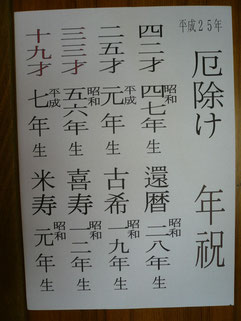 平成25年
厄除け 年祝
四二才 昭和四七年生 還暦 昭和二八年生
二五才 平成元年生 古希 昭和一九年生
三三才 昭和五六年生 喜寿 昭和一二年生
十九才 平成七年生 米寿 昭和元年生